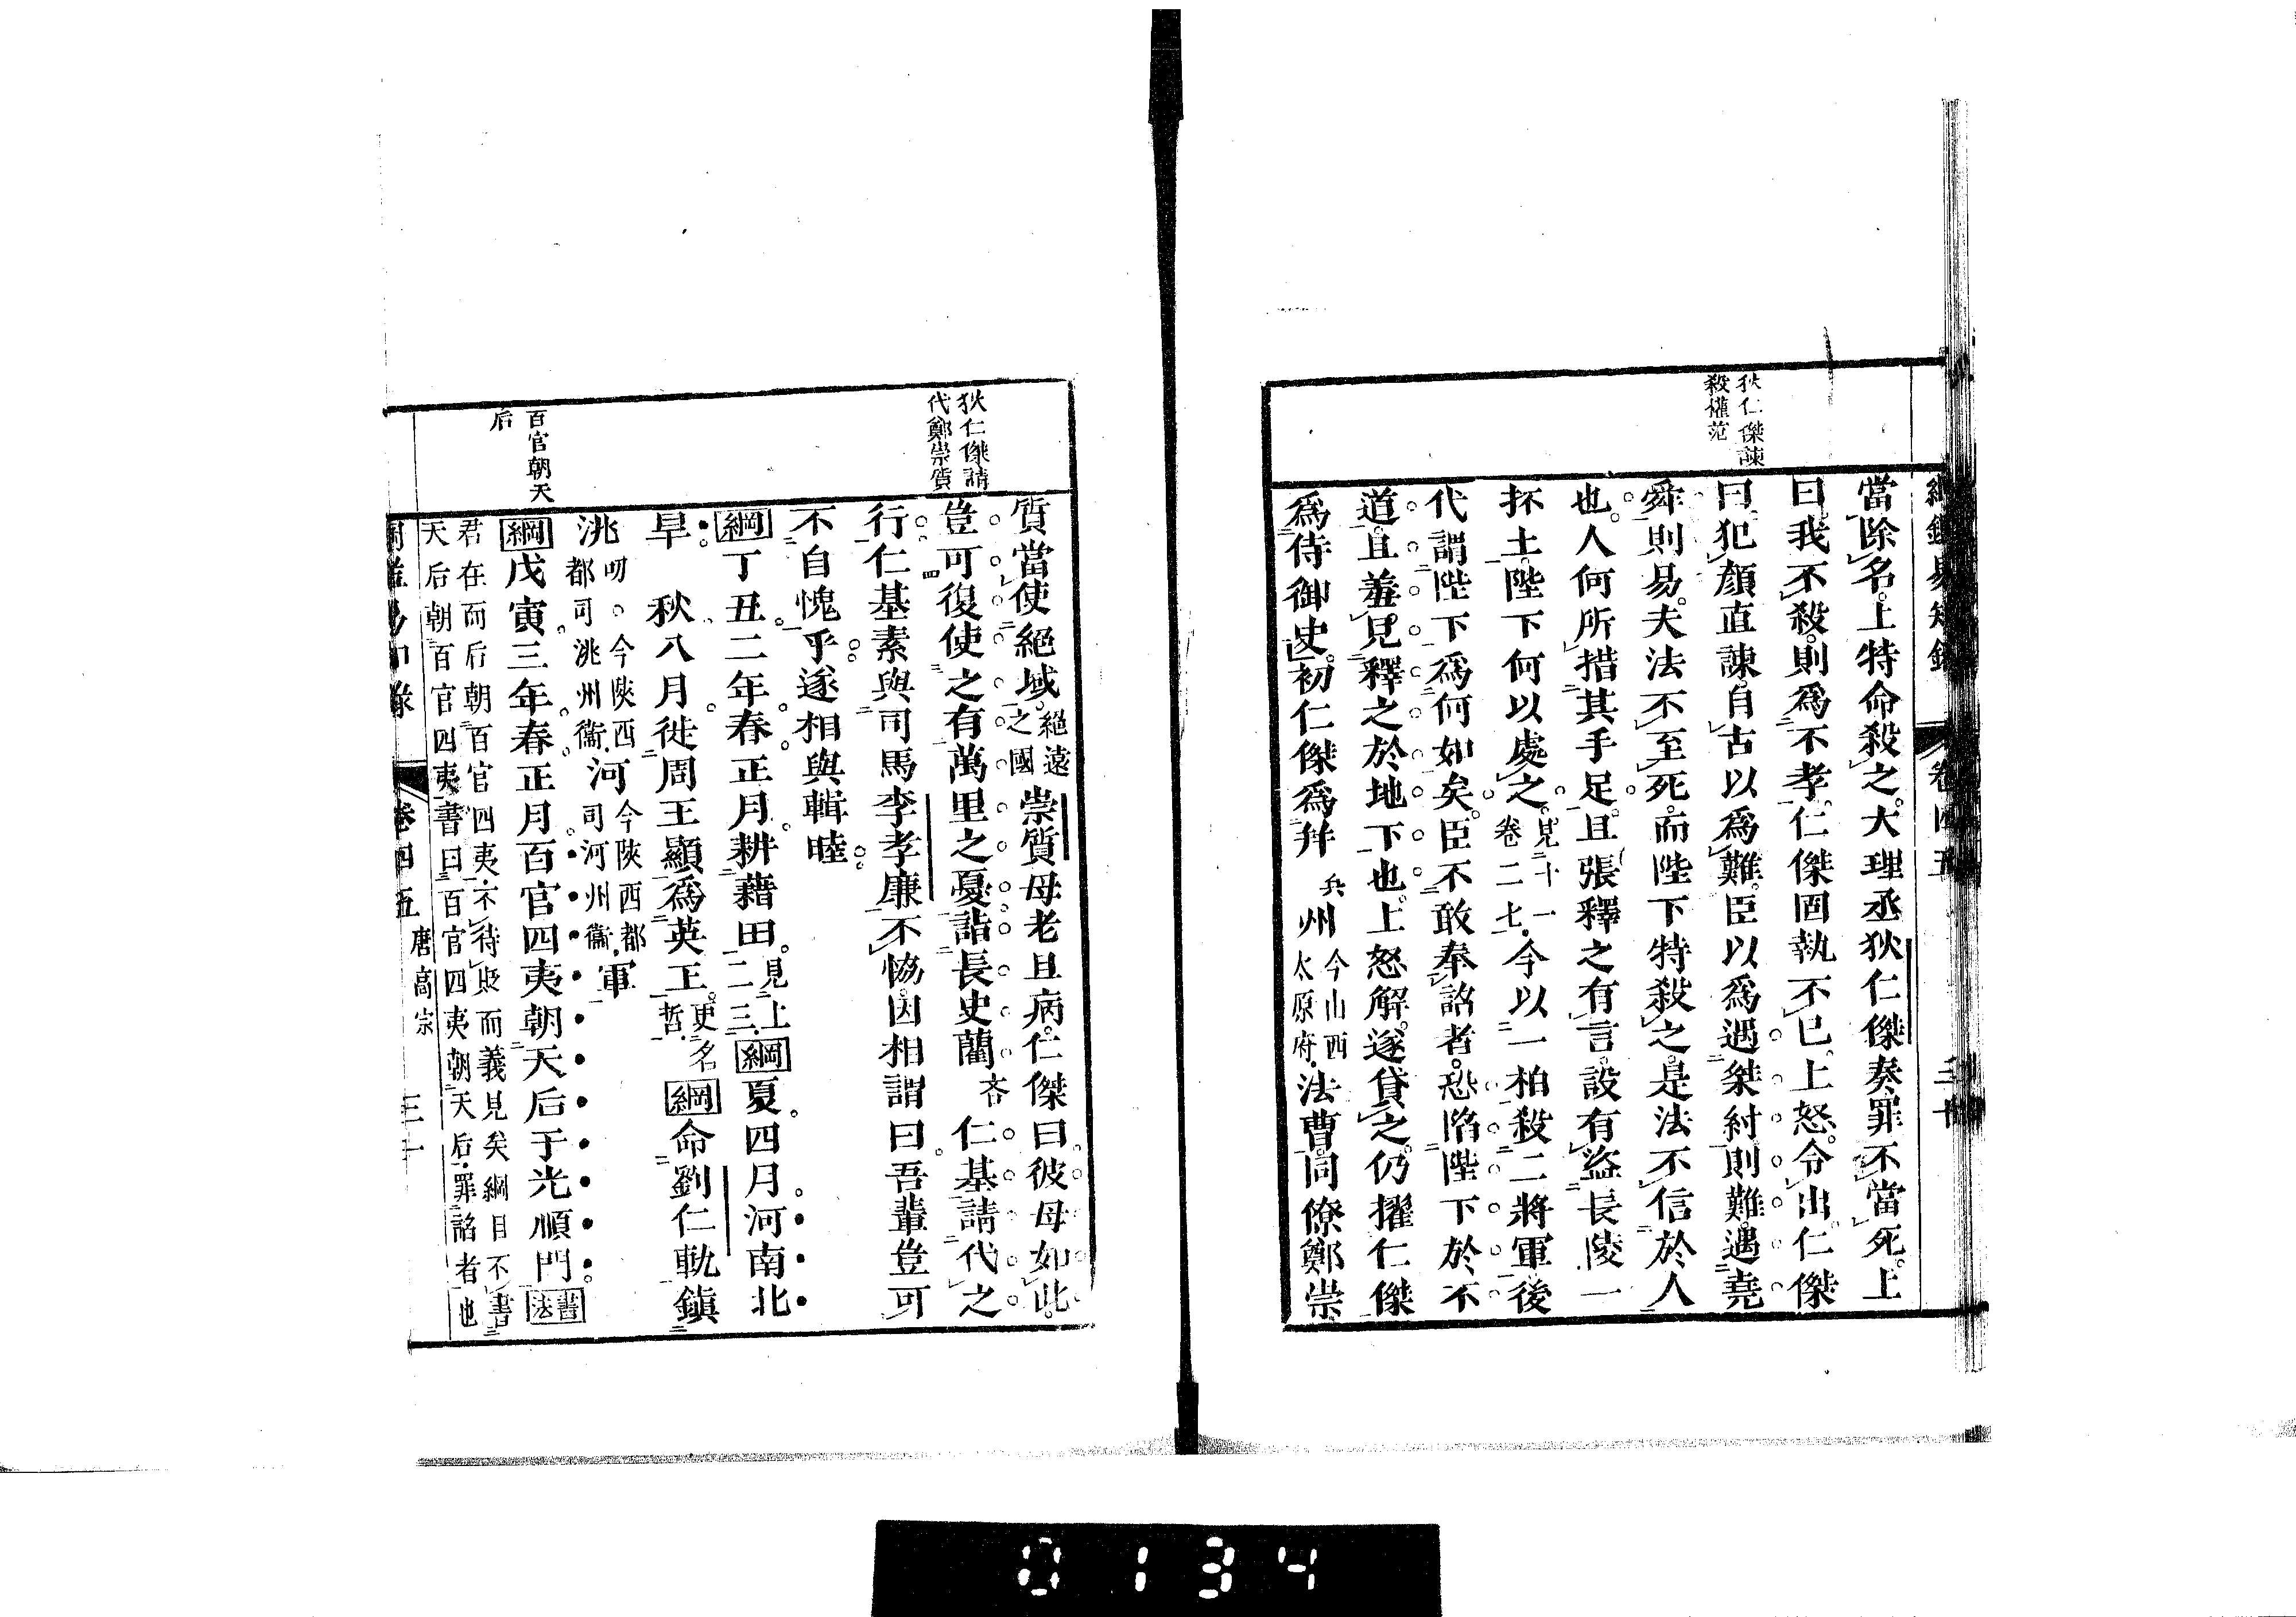 綱鑑易知錄 卷四五 三十
狄仁傑諫
殺權范
當除名上特命殺之大理丞狄仁傑奏罪不當死上
曰我不殺則爲不孝仁傑固執不已上怒令出仁傑
曰犯顏直諫自古以爲難臣以爲遇桀紂則難遇堯
舜則易夫法不至死而陛下特殺之是法不信於人
也人何所措其手足且張釋之有言設有盜長陵一
抔土陛下何以處之見十一卷二七今以一柏殺二將軍後
代謂陛下爲何如矣臣不敢奉詔者恐陷陛下於不
道且羞見釋之於地下也上怒解遂貸之仍擢仁傑
爲侍御史初仁傑爲幷兵州今山西太原府法曹同僚鄭崇
狄仁傑請
代鄭崇質
質當使絕域絕遠之國崇質母老且病仁傑曰彼母如此
豈可復使之有萬里之憂詣長史藺吝仁基請代之
行仁基素與司馬李孝廉不恊因相謂曰吾輩豈可
不自愧乎遂相與輯睦
綱丁丑二年春正月耕藉田見上二三綱夏四月河南北
旱 秋八月徙周王顯爲英王更名哲綱命劉仁軌鎭
洮叨今陝西都司洮州衞河今陝西都司河州衞軍
百官朝天
后
綱戊寅三年春正月百官四夷朝天后于光順門書法
君在而后朝百官四夷不待貶而義見矣綱目不書
天后朝百官四夷書曰百官四夷朝天后罪諂者也
卷四五 唐高宗 三十